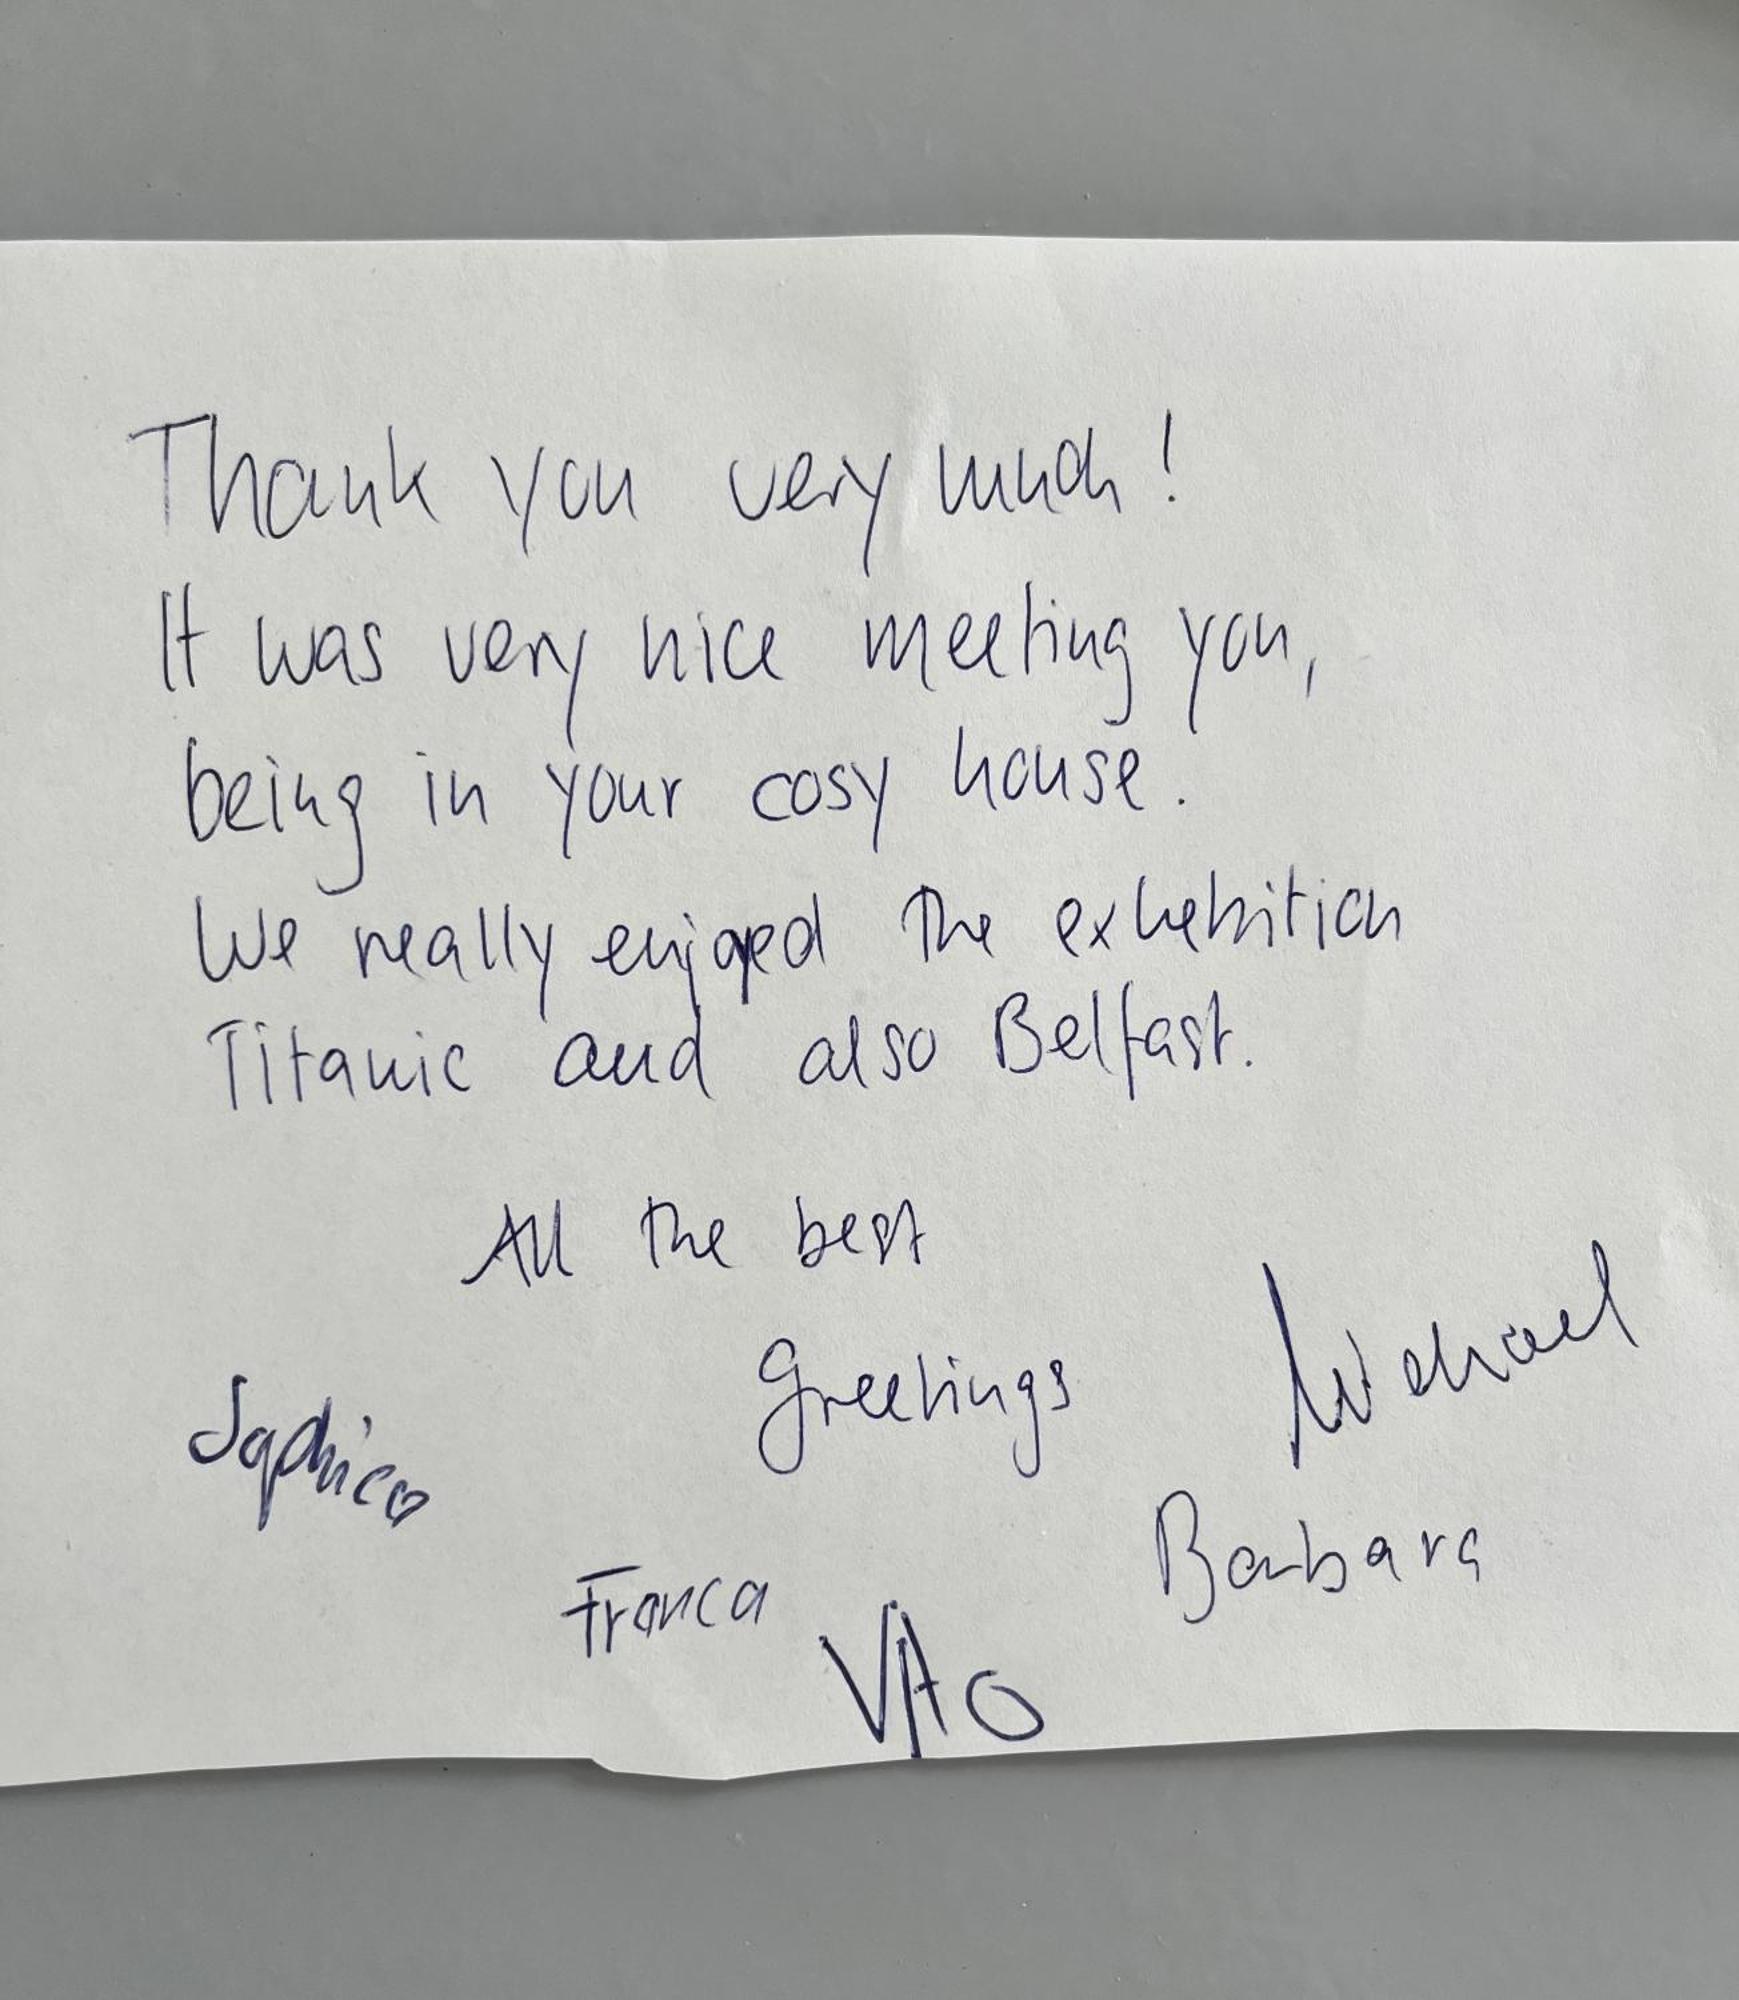 Thank you very much!
It was very nice meeting you,
being in your cosy house.
We really enjoyed the exhebition
Titanic and also Belfast.
All the best
Greetings
Michael
Barbara
Franca